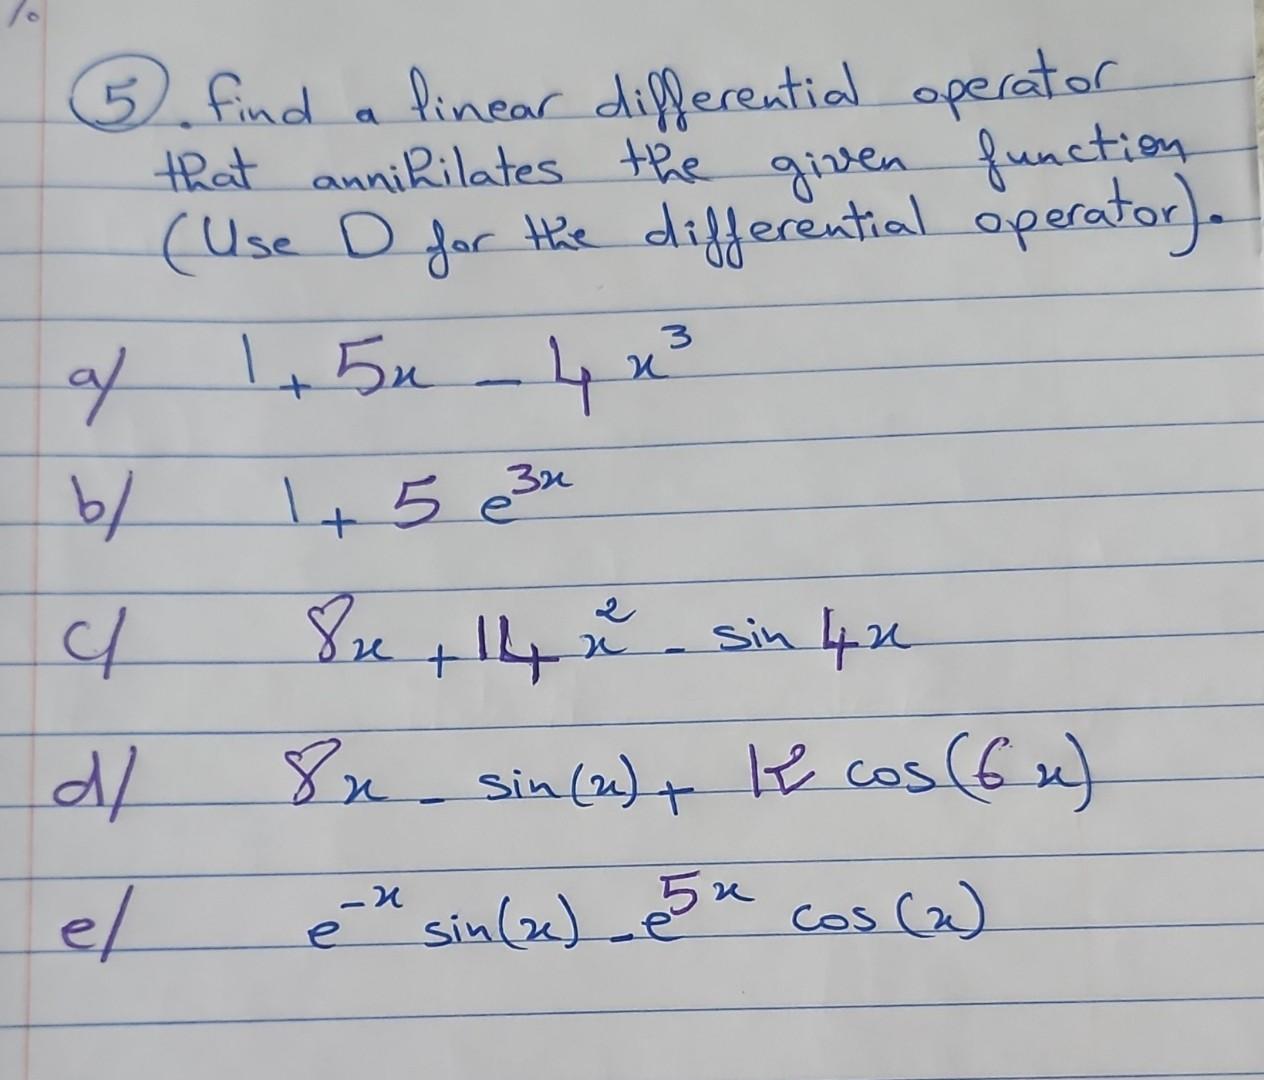 5. find a linear differential operator
that annihilates the given function
(Use D for the differential operator).
a/ 1 + 5x - 4x³
b/ 1 + 5 e³ˣ
c/ 8x + 14x² - sin 4x
d/ 8x - sin(x) + 12 cos(6x)
e/ e⁻ˣ sin(x) - e⁵ˣ cos(x)